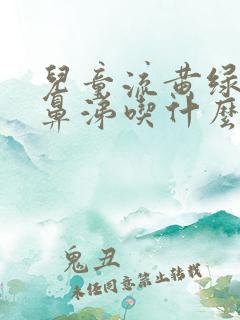 兒童流黄绿
鼻涕喫什麽
鬼丑
未经同意禁止转载